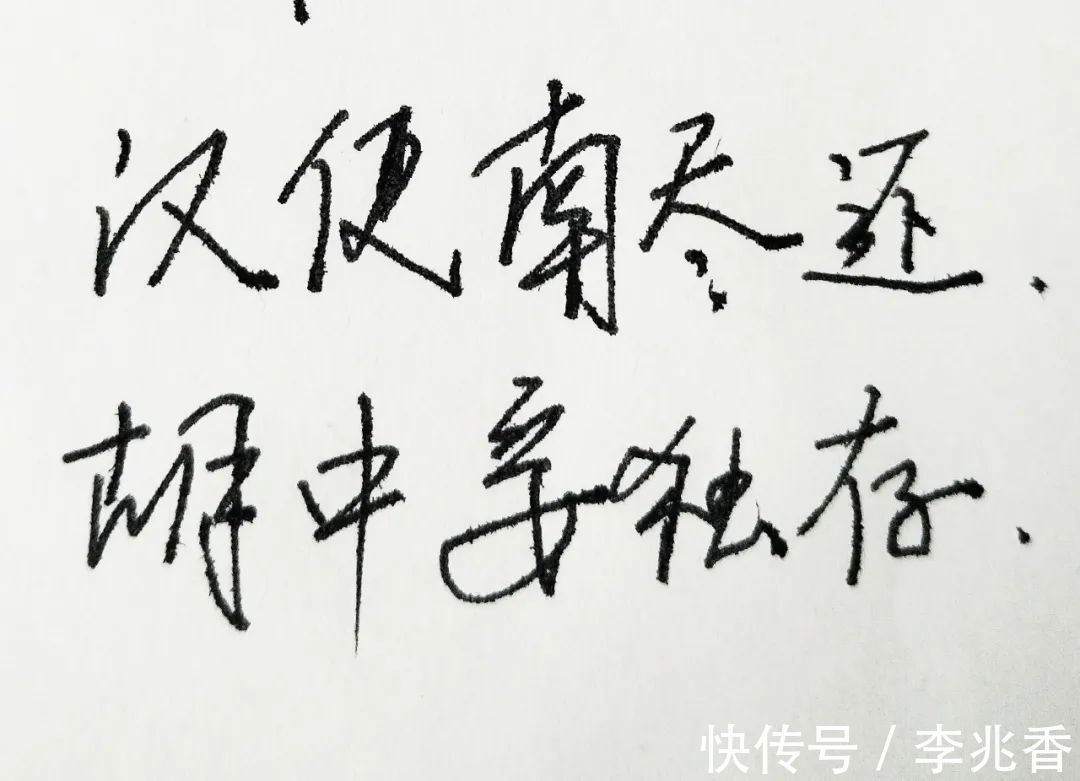 汉使南尽还.
胡中妾独存.
快传号 / 李兆香